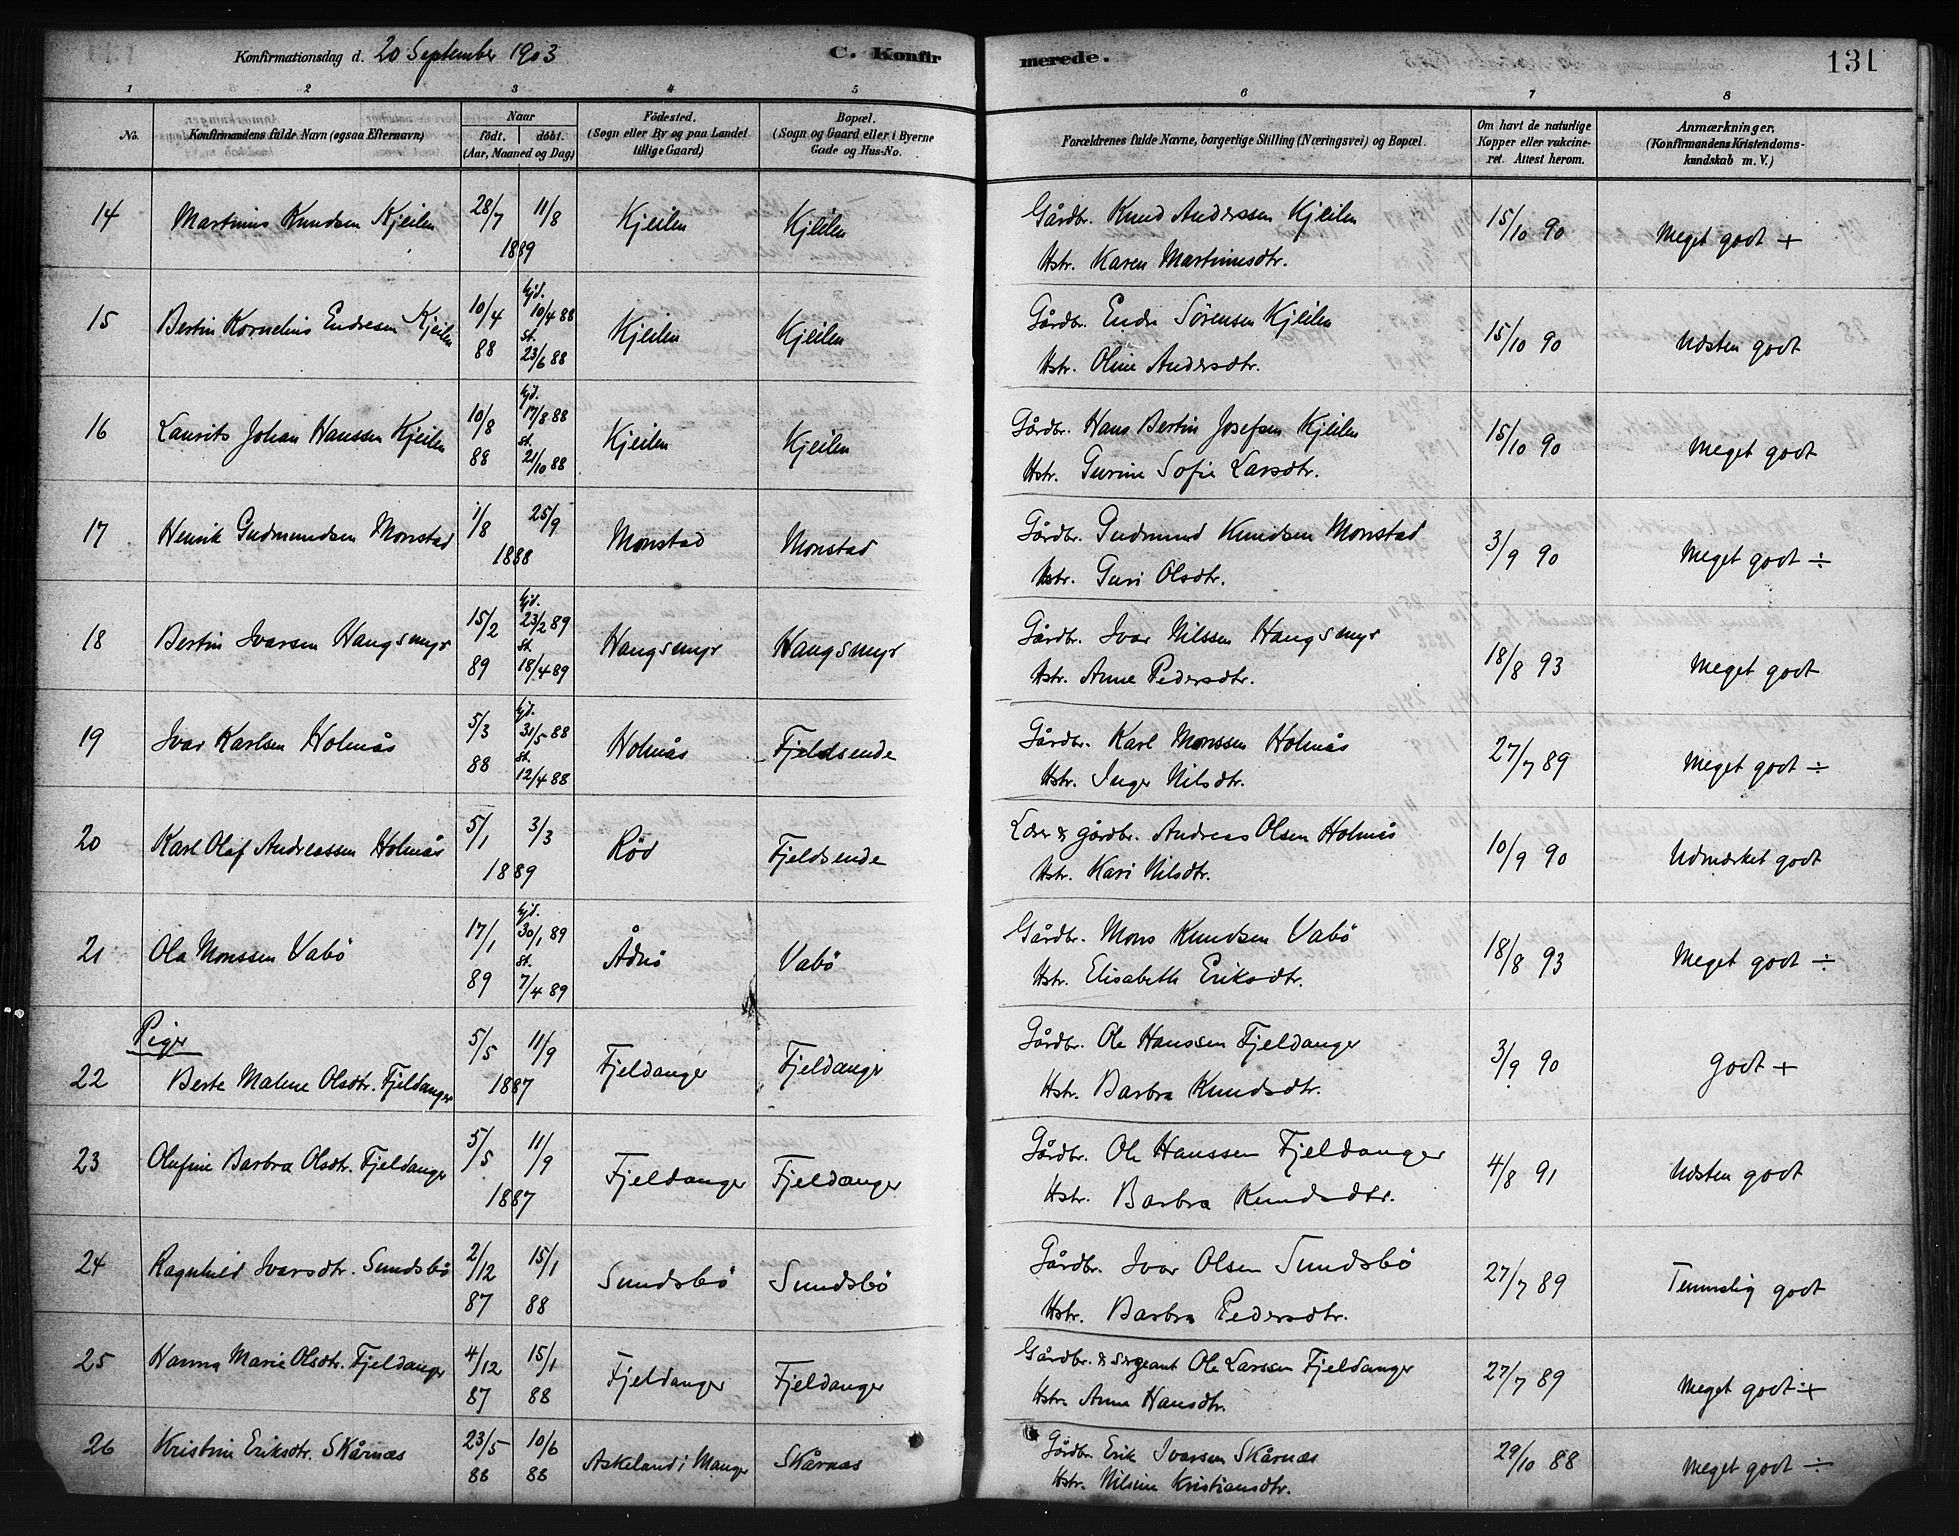 Konfirmationsdag d. 20 September 1903 C. Konfirmerede. 131
1 2 3 4 5 6 7 8
No. Konfirmandens fulde Navn (ogsaa Efternavn) Naar født. døbt. (Aar, Maaned og Dag) Fødested. (Sogn eller By og paa Landet tillige Gaard) Bopæl. (Sogn og Gaard eller i Byerne Gade og Hus-No. Forældrenes fulde Navne, borgerlige Stilling (Næringsvei) og Bopæl. Om havt de naturlige Kopper eller vakcineret. Attest herom. Anmærkninger. (Konfirmandens Kristendomskundskab m. V.)
14 Martinus Knudsen Kjeilen 28/7 11/8 1889 Kjeilen Kjeilen Gårdbr. Knud Anderssen Kjeilen 15/10 90 Meget godt +
Hstr. Karen Martinusdtr.
15 Bertin Kornelius Endresen Kjeilen 10/4 88 hjd. 10/4 88 st. 23/6 88 Kjeilen Kjeilen Gårdbr. Endre Sørensen Kjeilen 15/10 90 Næsten godt
Hstr. Oline Andersdtr.
16 Laurits Johan Hanssen Kjeilen 10/8 88 hjd. 17/8 88 st. 21/10 88 Kjeilen Kjeilen Gårdbr. Hans Bertin Josefsen Kjeilen 15/10 90 Meget godt
Hstr. Gurine Sofie Larsdtr.
17 Henrik Gudmundsen Monstad 1/8 25/9 1888 Monstad Monstad Gårdbr. Gudmund Knudsen Monstad 3/9 90 Meget godt ÷
Hstr. Guri Olsdtr.
18 Bertin Ivarsen Haugsmyr 15/2 89 hjd. 23/2 89 st. 18/4 89 Haugsmyr Haugsmyr Gårdbr. Ivar Nilssen Haugsmyr 18/8 93 Meget godt
Hstr. Anne Pedersdtr.
19 Ivar Karlsen Holmås 5/3 88 hjd. 31/5 88 st. 12/4 88 Holmås Fjeldsende Gårdbr. Karl Monssen Holmås 27/7 89 Meget godt ÷
Hstr. Inger Nilsdtr.
20 Karl Olaf Andreassen Holmås 5/1 3/3 1889 Rød Fjeldsende Lærer & gårdbr. Andreas Olsen Holmås 10/9 90 Udmærket godt
Hstr. Kari Nilsdtr.
21 Ola Monssen Vabø 17/1 89 hjd. 30/1 89 st. 7/4 89 Ådnø Vabø Gårdbr. Mons Knudsen Vabø 18/8 93 Meget godt ÷
Hstr. Elisabeth Eriksdtr.
Piger
22 Berte Malene Olsdtr. Fjeldanger 5/5 11/9 1887 Fjeldanger Fjeldanger Gårdbr. Ole Hanssen Fjeldanger 3/9 90 Godt +
Hstr. Barbra Knudsdtr.
23 Olufine Barbra Olsdtr. Fjeldanger 5/5 11/9 1887 Fjeldanger Fjeldanger Gårdbr. Ole Hanssen Fjeldanger 4/8 91 Næsten godt
Hstr. Barbra Knudsdtr.
24 Ragnhild Ivarsdtr. Sundsbø 2/12 87 15/1 88 Sundsbø Sundsbø Gårdbr. Ivar Olsen Sundsbø 27/7 89 Temmelig godt
Hstr. Barbra Pedersdtr.
25 Hanna Marie Olsdtr. Fjeldanger 4/12 87 15/1 88 Fjeldanger Fjeldanger Gårdbr. & sergeant Ole Larssen Fjeldanger 27/7 89 Meget godt
Hstr. Anna Hansdtr.
26 Kristine Eriksdtr. Skårnæs 23/5 88 10/6 88 Askeland i Manger Skårnæs Gårdbr. Erik Ivarsen Skårnæs 29/10 88 Meget godt ÷
Hstr. Nilsine Kristiansdtr.